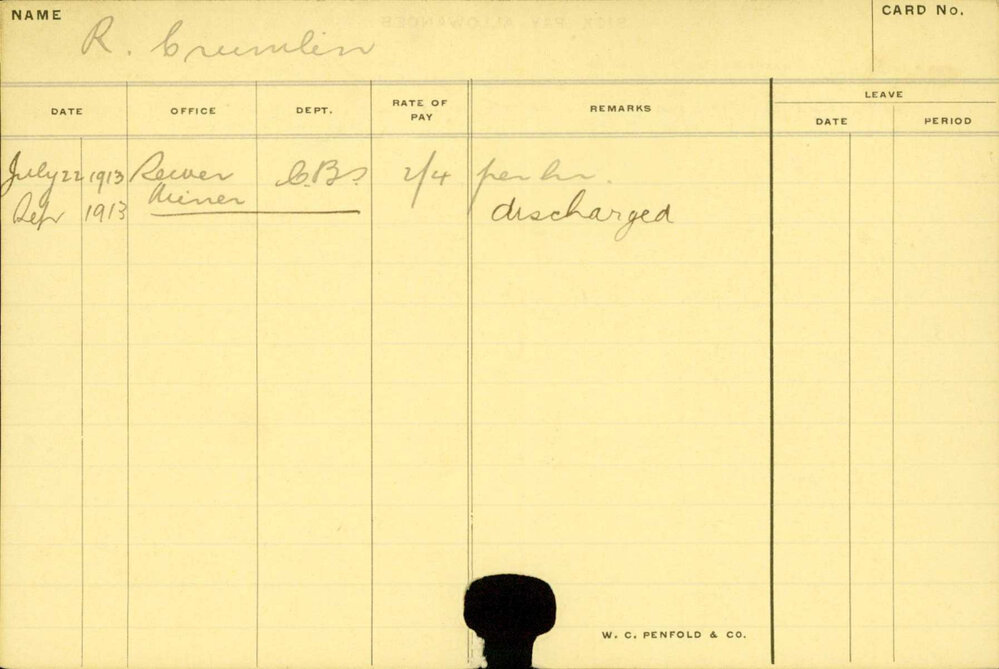 NAME R. Crumlin CARD No.
DATE OFFICE DEPT. RATE OF PAY REMARKS LEAVE
DATE PERIOD
July 22 1913 Sewer C.B.S 2/4 per hr.
Miner
Sep 1913 discharged
W. C. PENFOLD & CO.